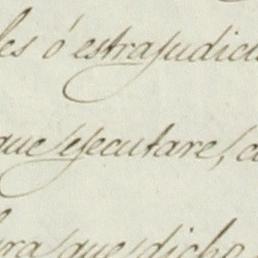 les ó estrajudicia
que ejecutare, c
ra que dicho